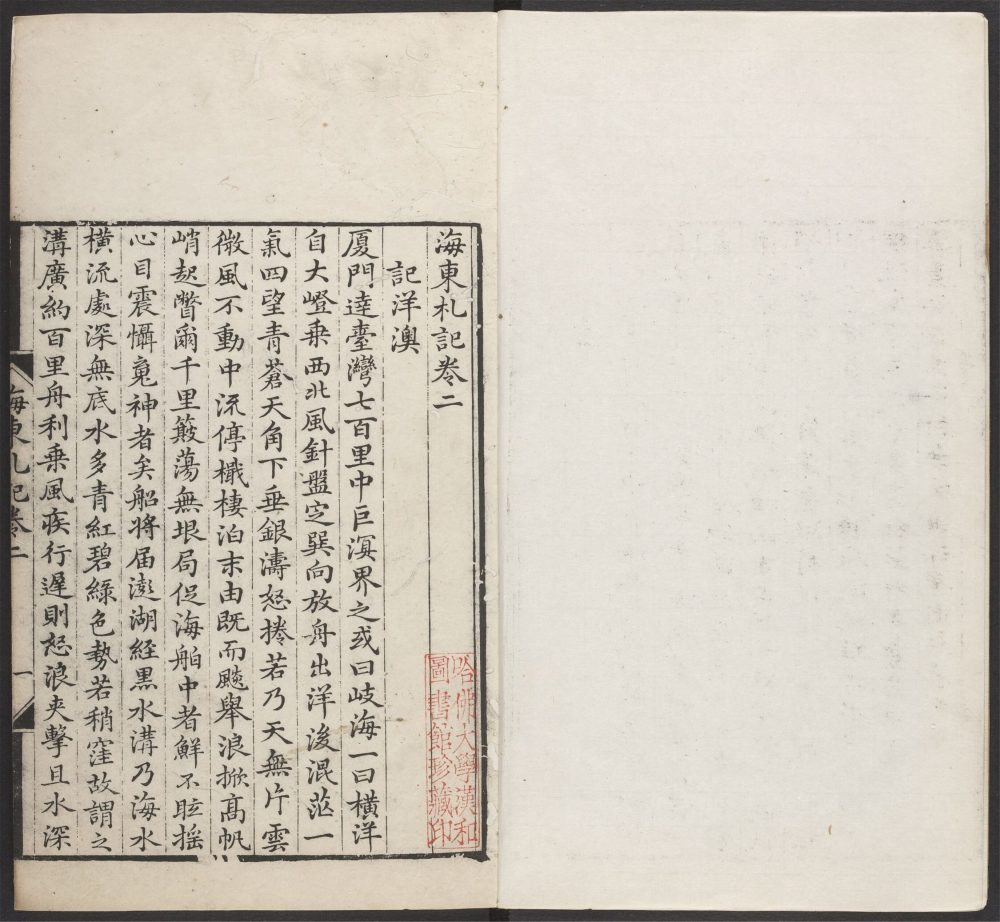 海東札記卷二
記洋澳
厦門達臺灣七百里中巨溟界之或曰岐海一曰橫洋
自大嶝乗西北風針盤定巽向放舟出洋後混茫一
氣四望青蒼天角下垂銀濤怒捲若乃天無片雲
微風不動中流停檝棲泊末由既而颷舉浪掀髙帆
峭起瞥爾千里簸蕩無垠局促海舶中者鮮不眩搖
心目震懾䰟神者矣船将届澎湖経黒水溝乃海水
橫流處深無底水多青紅碧綠色勢若稍窪故謂之
溝廣約百里舟利乗風疾行遲則怒浪夾擊且水深
海東札記卷二
一
哈佛大學漢和
圖書館珍藏印